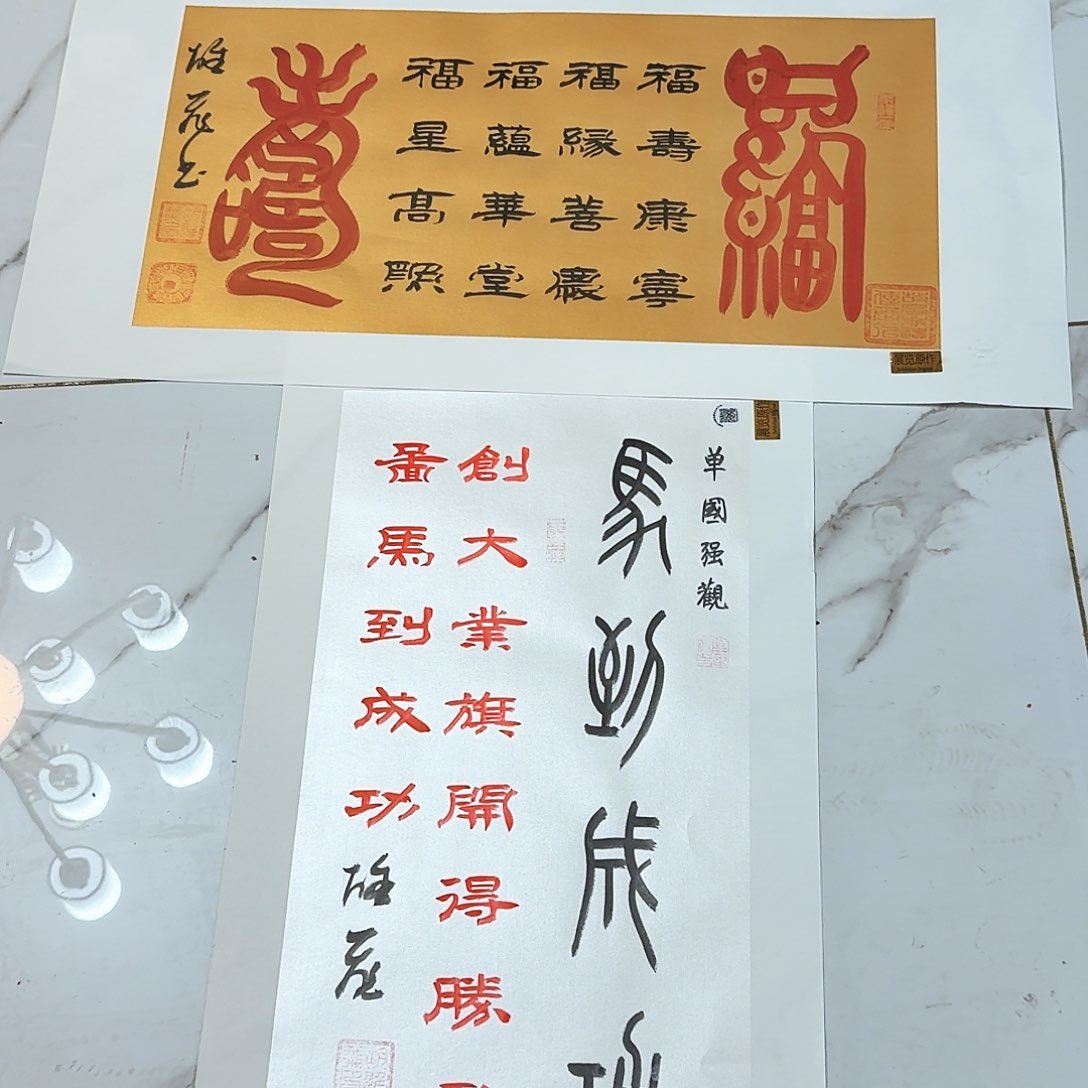 福
福壽康寧
福緣善慶
福蘊華堂
福星高照
壽
展览原作
单國强觀
馬到成功
創大業旗開得勝
啚馬到成功